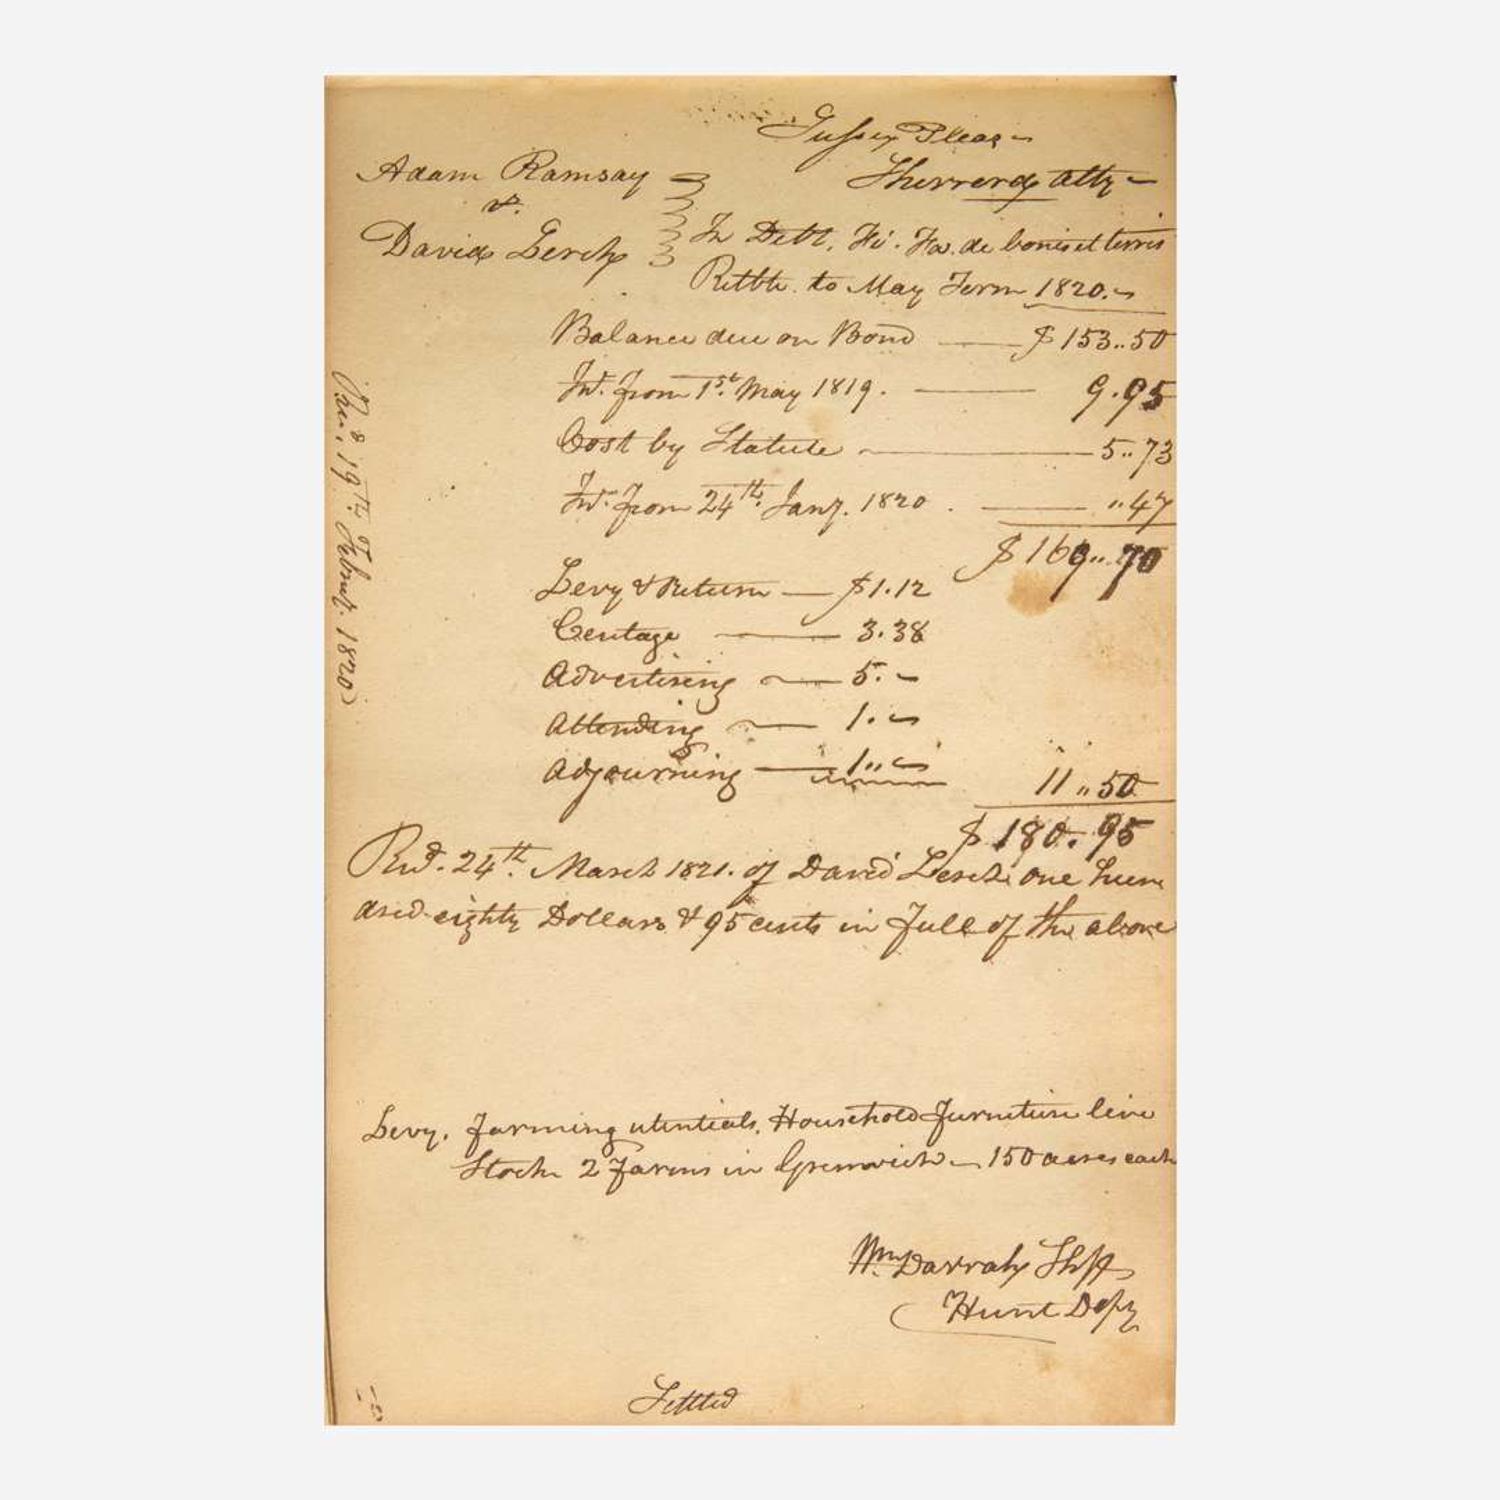 Sussex Pleas
Adam Ramsay
Sherrerd atty
vs.
David Lerch
In Debt. Fi. Fa. de bonis et terris
Retble. to May Term 1820.
Balance due on Bond $153..50
Int. from 1st. May 1819. 9.95
Cost by Statute 5..73
Int. from 24th. Jany. 1820. ..47
$169..70
Levy & Return $1.12
Centage 3.38
Advertising 5.
Attending 1.
Adjourning 1.. 11..50
$180.95
Recd. 24th. March 1821. of David Lerch one hun
dred eighty Dollars & 95 cents in full of the above
Levy. farming utentials. Household furniture live
Stock 2 Farms in Greenwich 150 acres each
Wm. Darrah Shff
Hunt Depy
Settled
Rec. 19th of Febuy. 1820